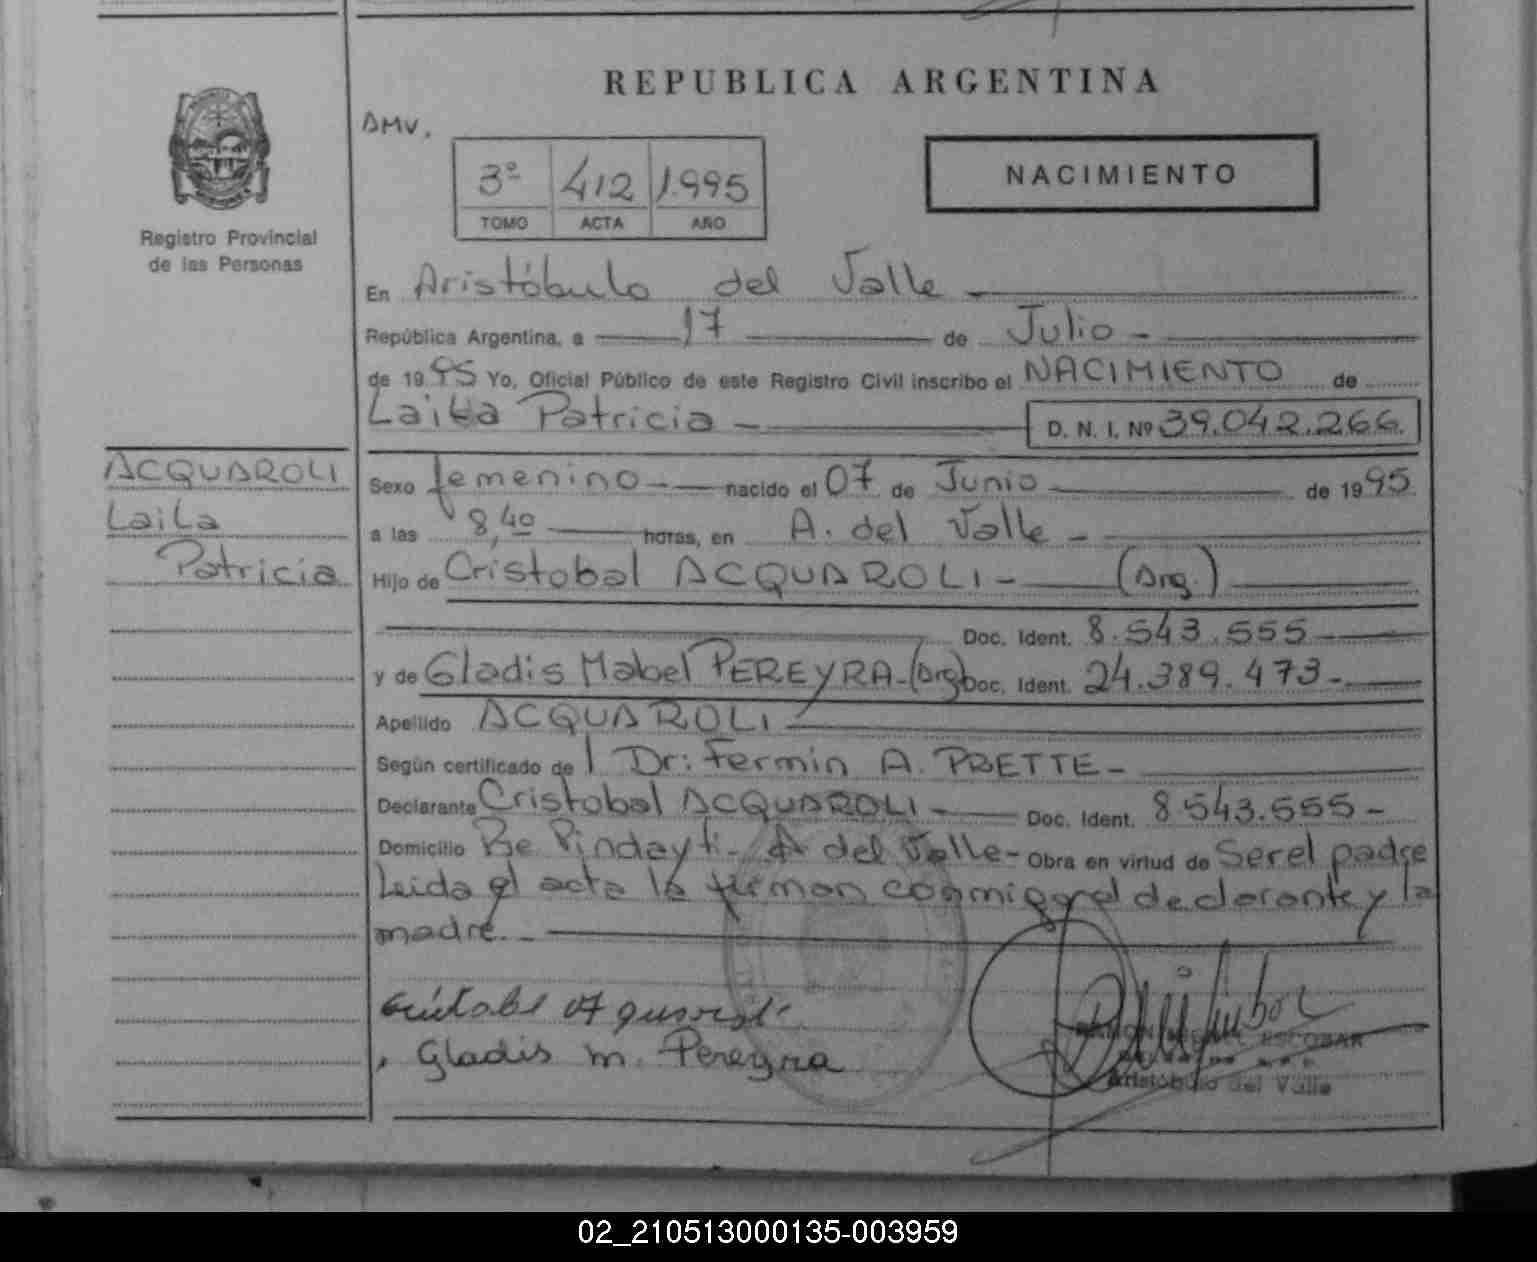 REPUBLICA ARGENTINA
DMV.
3º 412 1.995
TOMO ACTA AÑO
NACIMIENTO
Registro Provincial
de las Personas
En Aristóbulo del Valle
República Argentina, a 17 de Julio
de 1995 Yo, Oficial Público de este Registro Civil inscribo el NACIMIENTO de
Laila Patricia D. N. I. Nº 39.042.266.
ACQUAROLI
Laila
Patricia
Sexo femenino nacido el 07 de Junio de 1995
a las 8,40 horas, en A. del Valle
Hijo de Cristobal ACQUAROLI (Arg.)
Doc. Ident. 8.543.555
y de Gladis Mabel PEREYRA (Arg) Doc. Ident. 24.389.473
Apellido ACQUAROLI
Según certificado de l Dr: Fermin A. PRETTE
Declarante Cristobal ACQUAROLI Doc. Ident. 8.543.555
Domicilio Bº Pindayti - A del Valle - Obra en virtud de Ser el padre
Leida el acta la firman conmigo el declarante y la
madre.
Gladis M. Pereyra
ESCOBAR
Aristóbulo del Valle
02_210513000135-003959